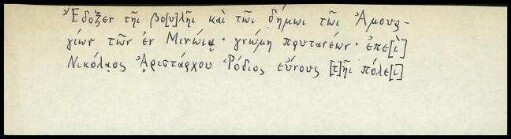 Ἔδοξεν τῆι βο[υ]λῆι καὶ τῶι δήμωι τῶι Ἀμοργ-
ίων τῶν ἐν Μινώια̣· γνώμη πρυτανέων· ἐπε[ὶ]
Νικόλα̣ος Ἀ̣ριστάρχου Ῥόδιος εὔνους [τ]ῆι πόλε[ι]